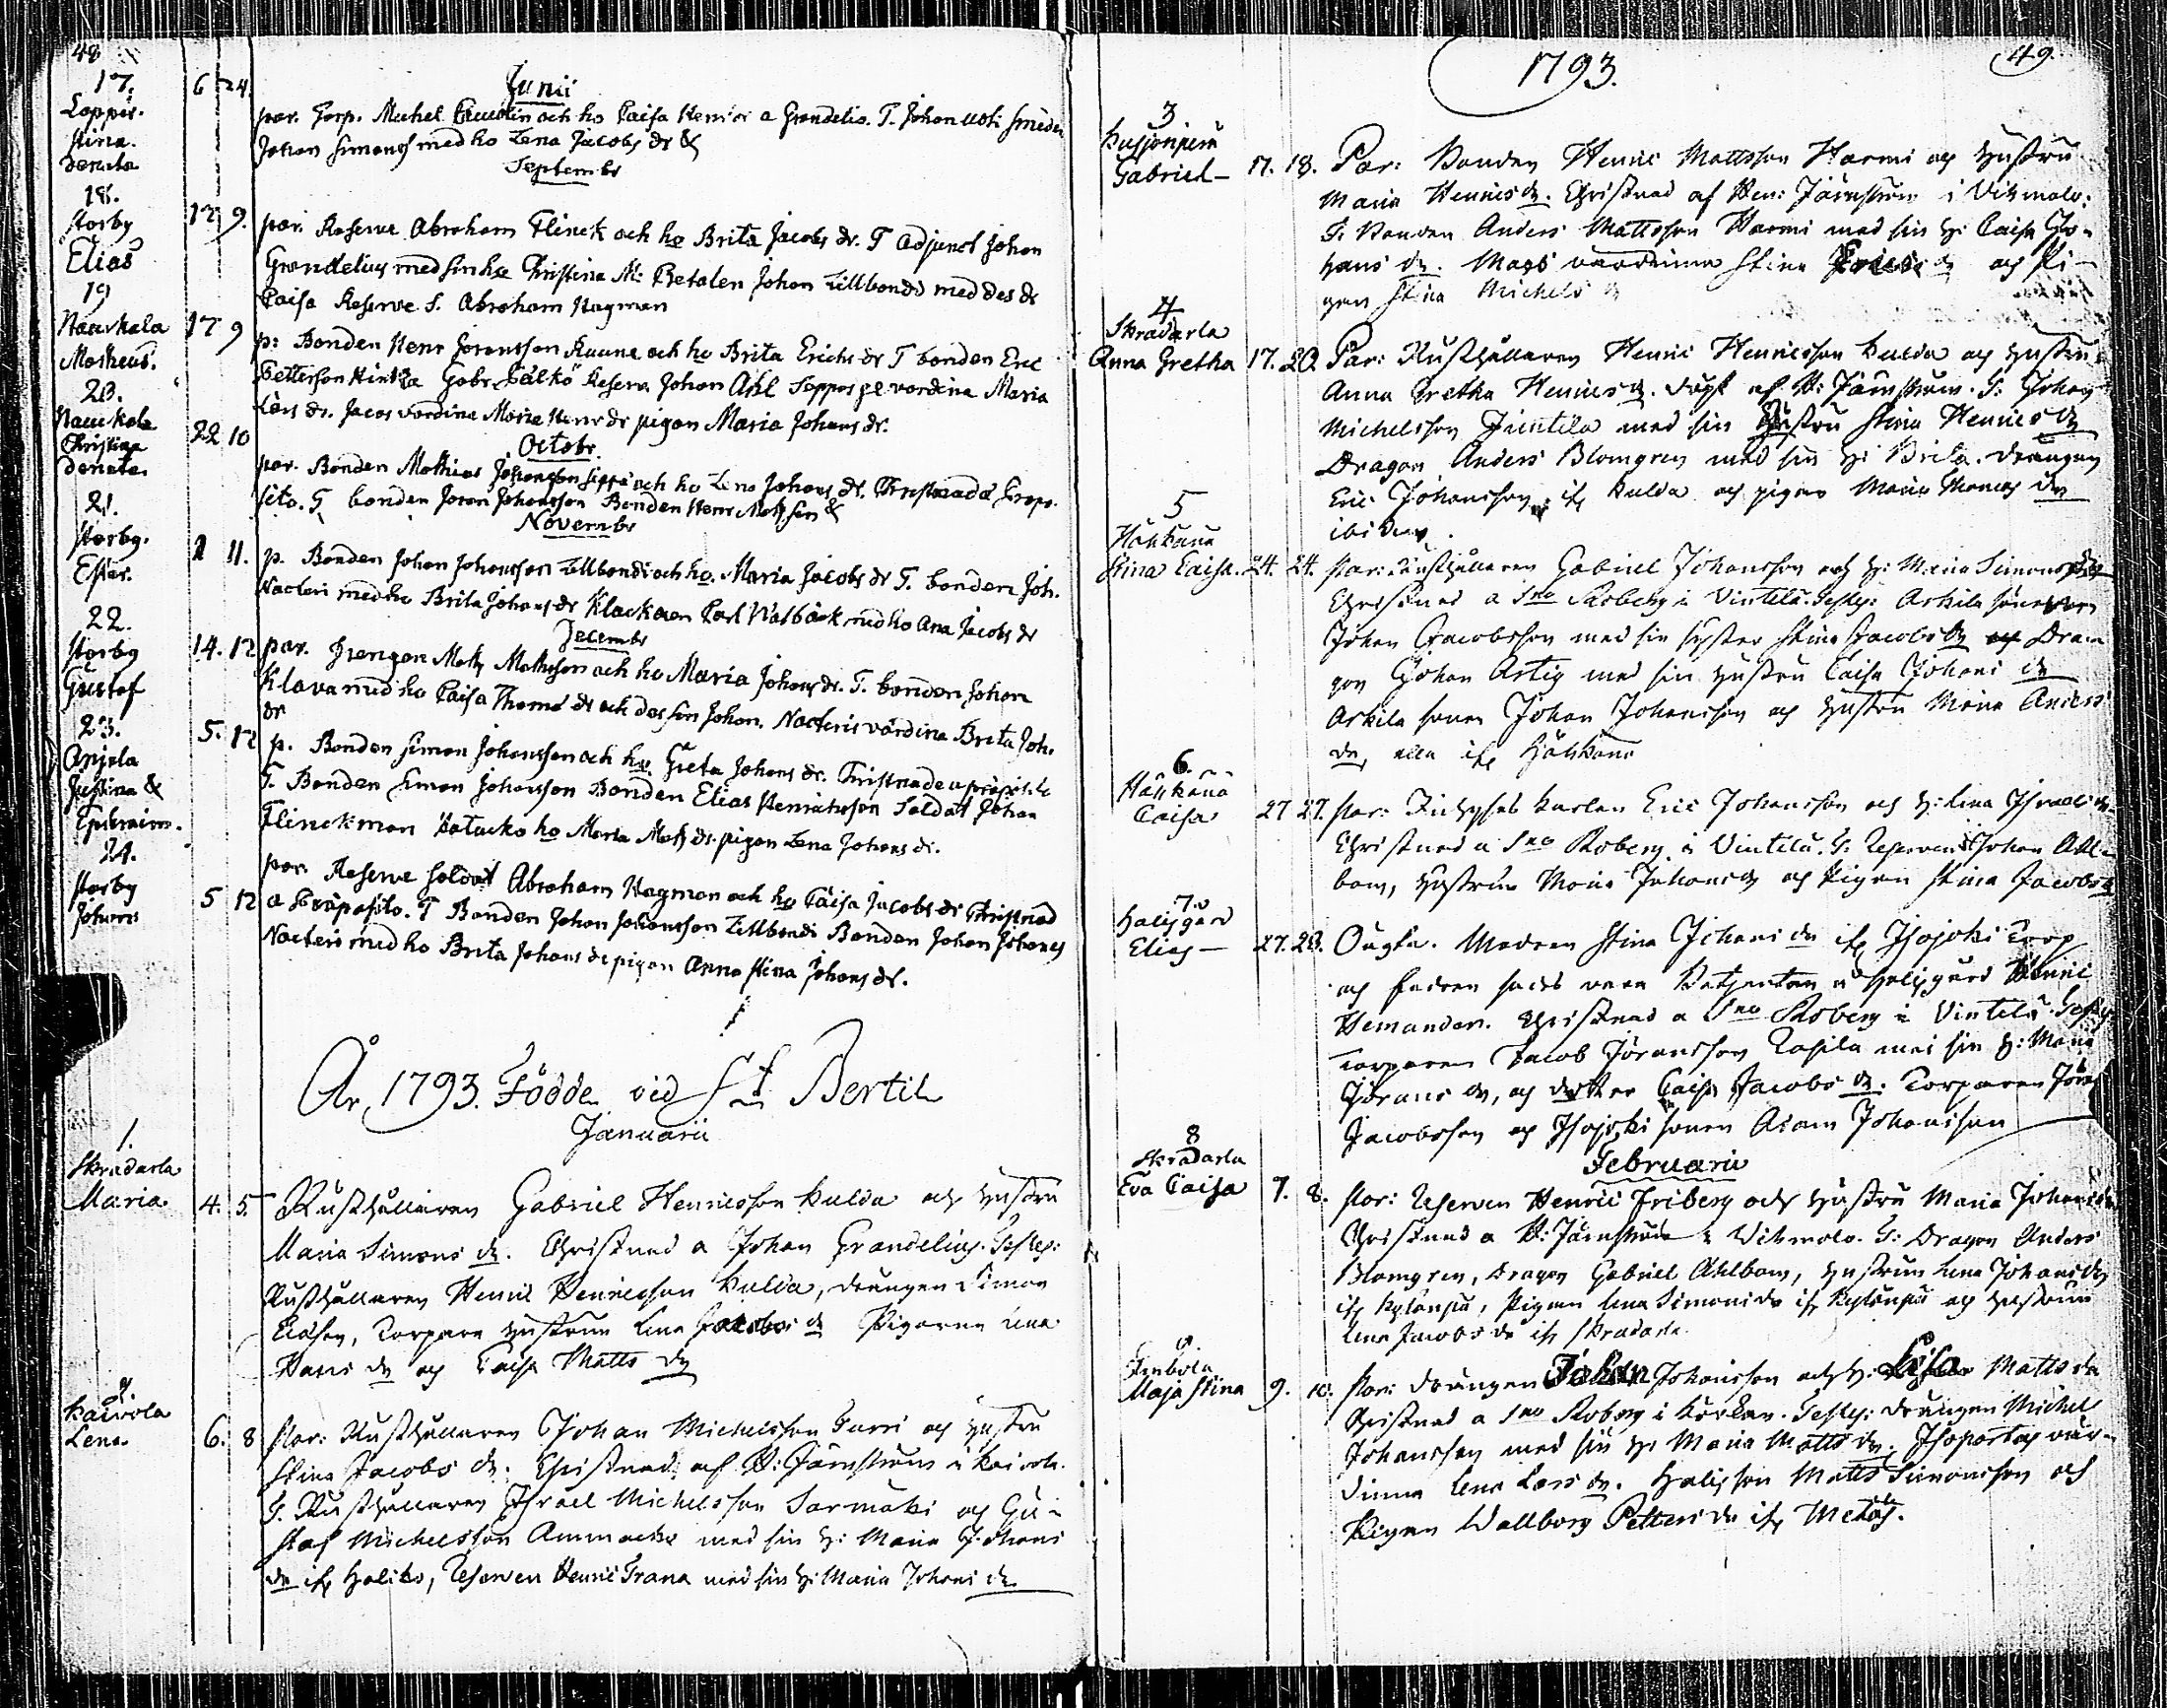 48
Junii
17.
Lopper.
Stina.
denata
6 24.
par. Torp. Michel och ho Caisa Henrici a Grandelio. T. Johan usti smeden
Johan Simons med ho Lena Jacobs dr &
Septembr
18.
Storby
Elias
12 9.
par. Reserve Abraham Flinck och ho Brita Jacobs dr. T Adjunct Johan
Grandelius med sin ho Christina M: Betalen Johan Zillbondi med des dr
Caisa Reserve S. Abraham Hagman
19
Nauckala
Matheus.
17 9
p: Bonden Henr Joransson Ruuna och ho Brita Erichs dr T bonden Eric
Pettersson Gabr. Pälkö Reserv Johan Ahl Seppes vardina Maria
Lars dr. Jacos vardina Maria Henr dr pigan Maria Johans dr.
Octobr.
20.
Nauckala
Christina
denata.
22 10
par. Bonden Mathias Johansson Seppä och ho Lena Johans dr. Christnad a Præpo-
sito. T. bonden Joran Johansson Bonden Henr Matsson &
Novembr
21.
Storby.
Ester.
1 11.
p. Bonden Johan Johansson Zillbondi och ho. Maria Jacobs dr T. bonden Joh.
Nacteri med ho Brita Johans dr Klackaren Carl Walbäck med ho Ana Jacobs dr
Decembr
22.
Storby
Gustaf
14. 12
par. Drengen Math Mathsson och ho Maria Johans dr. T. bonden Johan
Klava med ho Caisa Thomæ dr och des son Johan. Nacteris värdina Brita Joh.
dr
23.
Anjala
Justina &
Ephraim.
5. 12
p. Bonden Simon Johansson och ho. Greta Johans dr. Christnade a præposito
T. Bonden Simon Johansson Bonden Elias Henriksson Soldat Johan
Flinckman ho Maria Math dr. pigan Lena Johans dr.
24.
Storby
Johans
5 12
par. Reserve Soldat Abraham Hagman och ho Caisa Jacobs dr Christnad
a Præposito. T Bonden Johan Johansson Zillbondi Bonden Johan Johans
Nacteri med ho Brita Johans dr pigan Anna Stina Johans dr.
År 1793. Födde vid St Bertil
Januarii
1.
Skradarla
Maria.
4. 5.
Rusthållaren Gabriel Henricsson Kulda och hustru
Maria Simons dr. Christnad a Johan Grandelius. Testes:
Rusthållaren Henric Henricsson Kulda, drängen Simon
Ericsson, Torpare hustrun Lena Jacobs dr Pigorna Lena
Hans dr och Caisa Matts dr
2.
Kaivola
Lena.
6. 8
Par: Rusthållaren Johan Michelsson Turri och hustru
Stina Jacobs dr. Christnad af H: Järnström i Kaivola.
T. Rusthållaren Israel Michelsson Sarmaki och Gu-
staf Michelsson Ammache med sin h: Maria Johans
dr ifr Haliko, Reserven Henric Trana med sin h: Maria Johans dr
1793.
49.
3
Husjonpera
Gabriel
17. 18.
Par: Bonden Henric Mattsson Harmi och hustru
Maria Henrics dr. Christnad af Hen: Järnström i Vihmalo.
T. Bonden Anders Mattsson Harmi med sin h: Caisa Jo-
hans dr. värdinna Stina dr och Pi-
gan Stina Michels dr
4
Skradarla
Anna Gretha
17. 20.
Par: Rusthållaren Henric Henricsson Kulda och hustru
Anna Gretha Henrics dr. döpt af H: Järnström. T: Johan
Michelsson Jientila med sin hustru Stina Henrics dr
Dragon Anders Blomgren med sin h: Brita. drängen
Eric Johansson ifr Kulda och pigan Maria Thomas dr
ibidem.
5
Häckänä
Stina Caisa.
24. 24.
Par: Rusthållaren Gabriel Johansson och h: Maria Simons dr
Christnad a Sno Roberg i Vintela. Testes: Arkila sonen
Johan Jacobsson med sin syster Stina Jacobs dr Dra-
gon Johan Artig med sin hustru Caisa Johans dr
Arkila sonen Johan Johansson och hustru Maria Anders
dr, alla ifr Häkkänä
6.
Häckänä
Caisa
27 27.
Par: Inhyses karlen Eric Johansson och h: Lina Israels dr.
Christnad a Sno Roberg i Vintela. T. Reserven Johan Ahl-
bom, hustrun Maria Johans dr och Pigan Stina Jacobs dr
7.
Halisgård
Elias
27. 28.
Oägta. Modren Stina Johans dr ifr Isojoki Torp
och fadren sades vara Betjenten a Halisgård Henric
Hemander. Christnad a Sno Roberg i Vintela. Testes
Torparen Jacob Jöransson Rasila med sin h: Maria
Jörans dr, och dotter Caisa Jacobs dr. Torparen Jöran
Jacobsson och Isojoki sonen Adam Johansson
Februarii
8
Skradarla
Eva Caisa
7. 8.
Par: Reserven Henric Friberg och hustru Maria Johans dr
Christnad a H: Järnström i Vihmalo. T: Dragon Anders
Blomgren, Dragon Gabriel Ahlbom, hustrun Lena Johans dr
ifr Kylänpä, Pigan Lena Simons dr ifr Kylänpä och hustrun
Lena Jacobs dr ifr Skradarla
9.
Inkola
Maja Stina
9. 10.
Par: drängen Johan Johansson och h: Lisa Matts dr
Christnad a Sno Roberg i Körkar. Testes: drängen Michel
Johansson med sin h: Maria Matts dr. Isopartas vär-
dinna Lena Lars dr. Halisson Matts Simonsson och
Pigan Wallborg Petters dr ifr